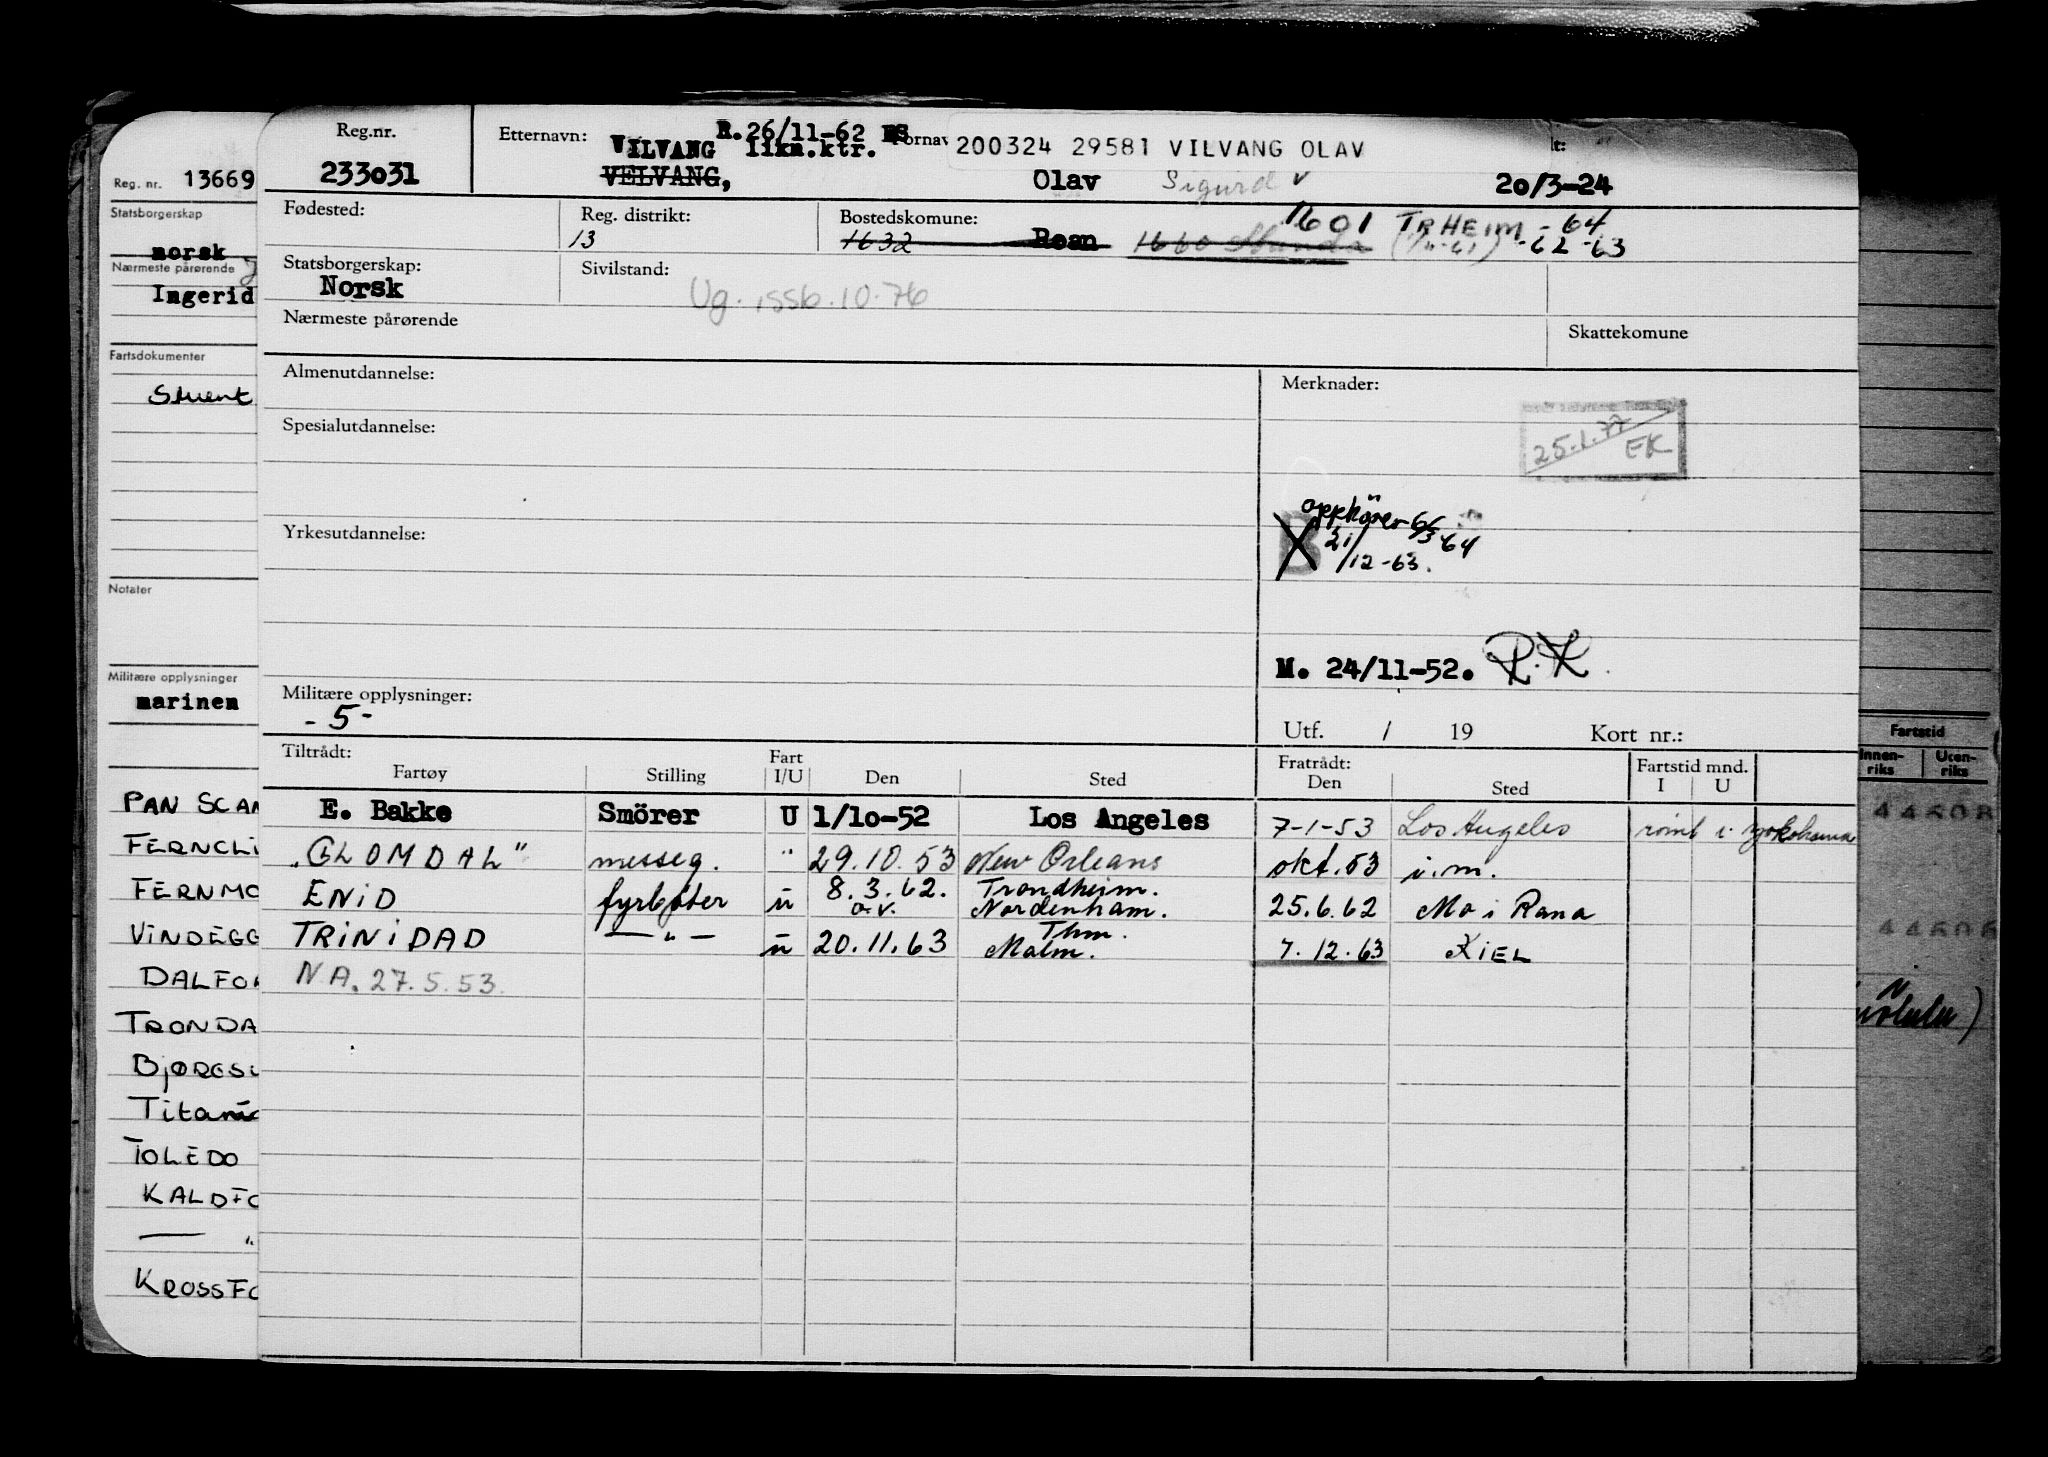 Reg.nr.
233031
Etternavn:
R. 26/11-62
VILVANG likn.ktr.
VELVANG,
Fornav
200324 29581 VILVANG OLAV
Olav Sigurd
20/3-24
Fødested:
Reg. distrikt:
13
Bostedskomune:
1632 Roan 1660 Strinda 1601 TRHEIM - 64
-62 -63
Statsborgerskap:
Norsk
Sivilstand:
Ug.
10.76
Nærmeste pårørende
Skattekomune
Almenutdannelse:
Merknader:
25.1.77
EK
Spesialutdannelse:
Yrkesutdannelse:
opphörer
21/12-63.
M. 24/11-52.
Militære opplysninger:
- 5 -
Utf. / 19 Kort nr.:
Tiltrådt:
Fartøy Stilling Fart I/U Den Sted Fratrådt: Den Sted Fartstid mnd. I U
E. Bakke Smörer U 1/10-52 Los Angeles 7-1-53 Los Angeles römt i Yokohama
"GLOMDAL" messeg. " 29.10.53 New Orleans okt.53 i.m.
ENID fyrbøter u 8.3.62. Trondheim. Nordenham. 25.6.62 Mo i Rana
TRINIDAD — " — u 20.11.63 Thm. Malm. 7.12.63 KIEL
N.A. 27.5.53.
Reg. nr. 13669
Statsborgerskap
norsk
Nærmeste pårørende
Ingerid
Fartsdokumenter
Notater
Militære opplysninger
marinen
PAN SCAN
FERNCLI
FERNMO
VINDEGG
DALFO
TRONDA
BJØRGS
Titan
TOLEDO
KALDFO
— "
KROSSFO
Fartstid
Innen-
riks
Uten-
riks